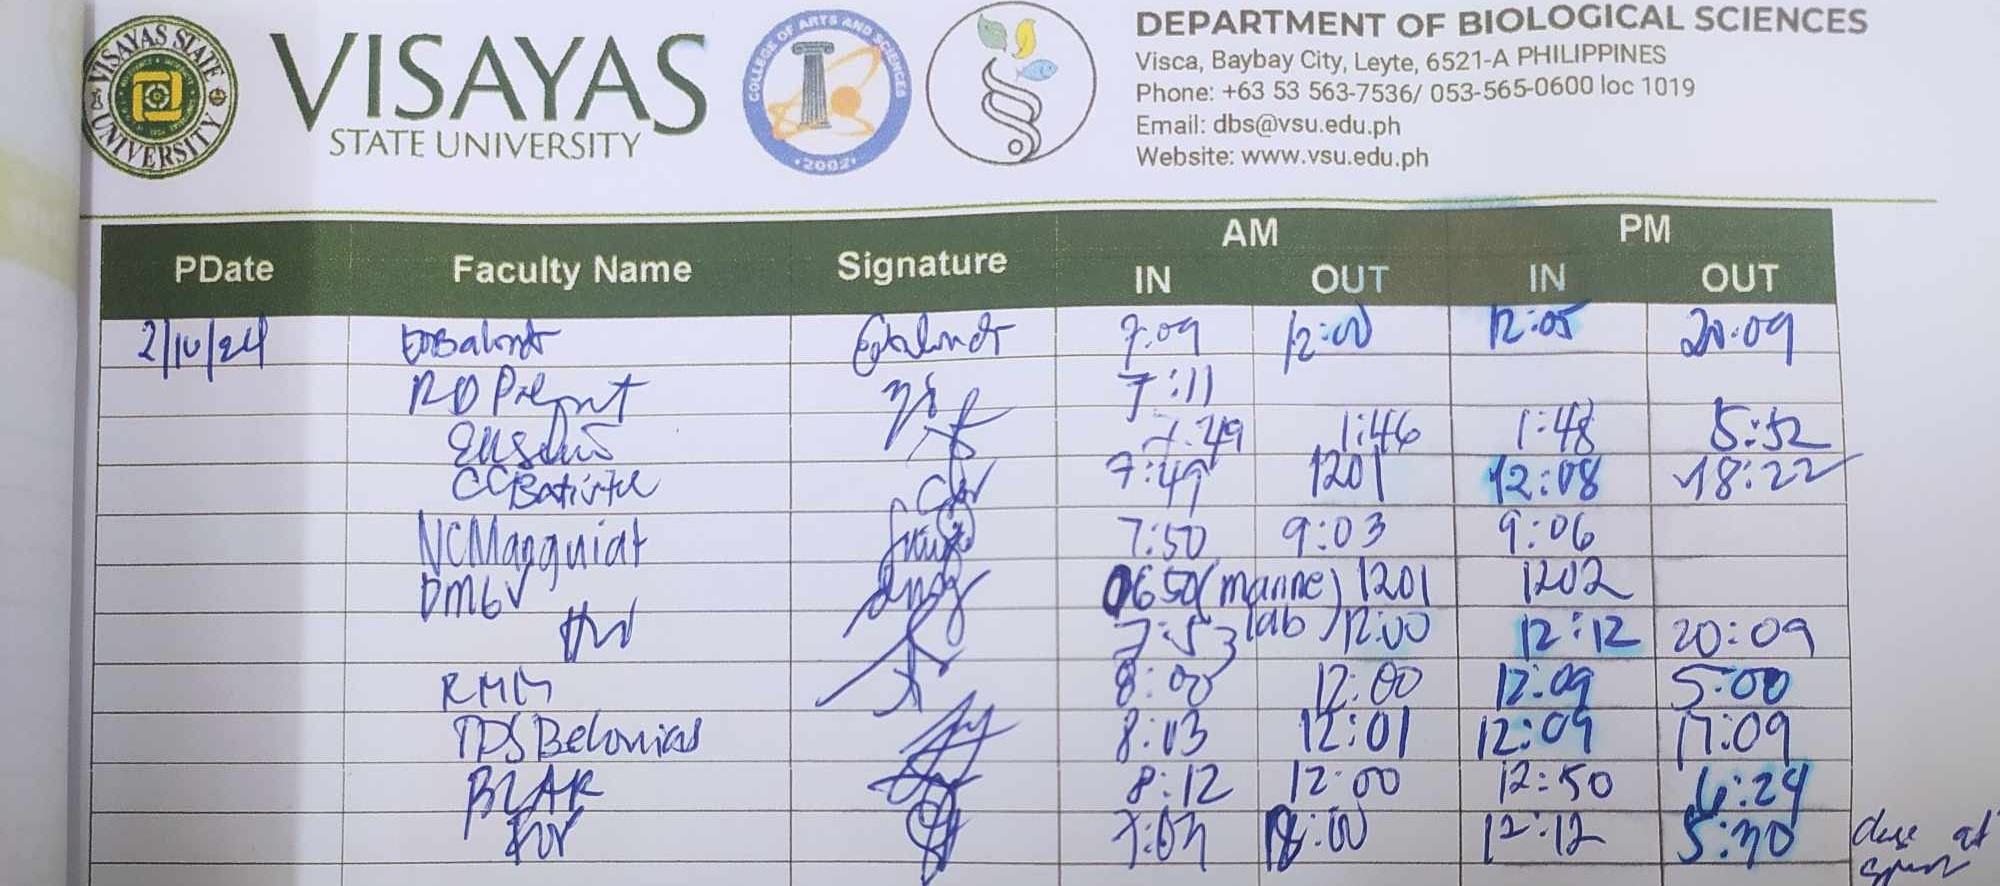 VISAYAS STATE UNIVERSITY
VISAYAS
STATE UNIVERSITY
COLLEGE OF ARTS AND SCIENCES
2002
DEPARTMENT OF BIOLOGICAL SCIENCES
Visca, Baybay City, Leyte, 6521-A PHILIPPINES
Phone: +63 53 563-7536/ 053-565-0600 loc 1019
Email: dbs@vsu.edu.ph
Website: www.vsu.edu.ph
AM PM
PDate Faculty Name Signature IN OUT IN OUT
7:09 12:00 12:05 20:09
RD 7:11
7:49 1:46 1:48 5:52
7:49 1201 12:08 18:22
NCManguiat 7:50 9:03 9:06
DMGV 0650 (marine lab) 1201 1202
7:53 12:00 12:12 20:09
RMM 8:00 12:00 12:09 5:00
TDS Belonias 8:03 12:01 12:09 17:09
8:12 12:00 12:50 6:24
12:12 5:30
at